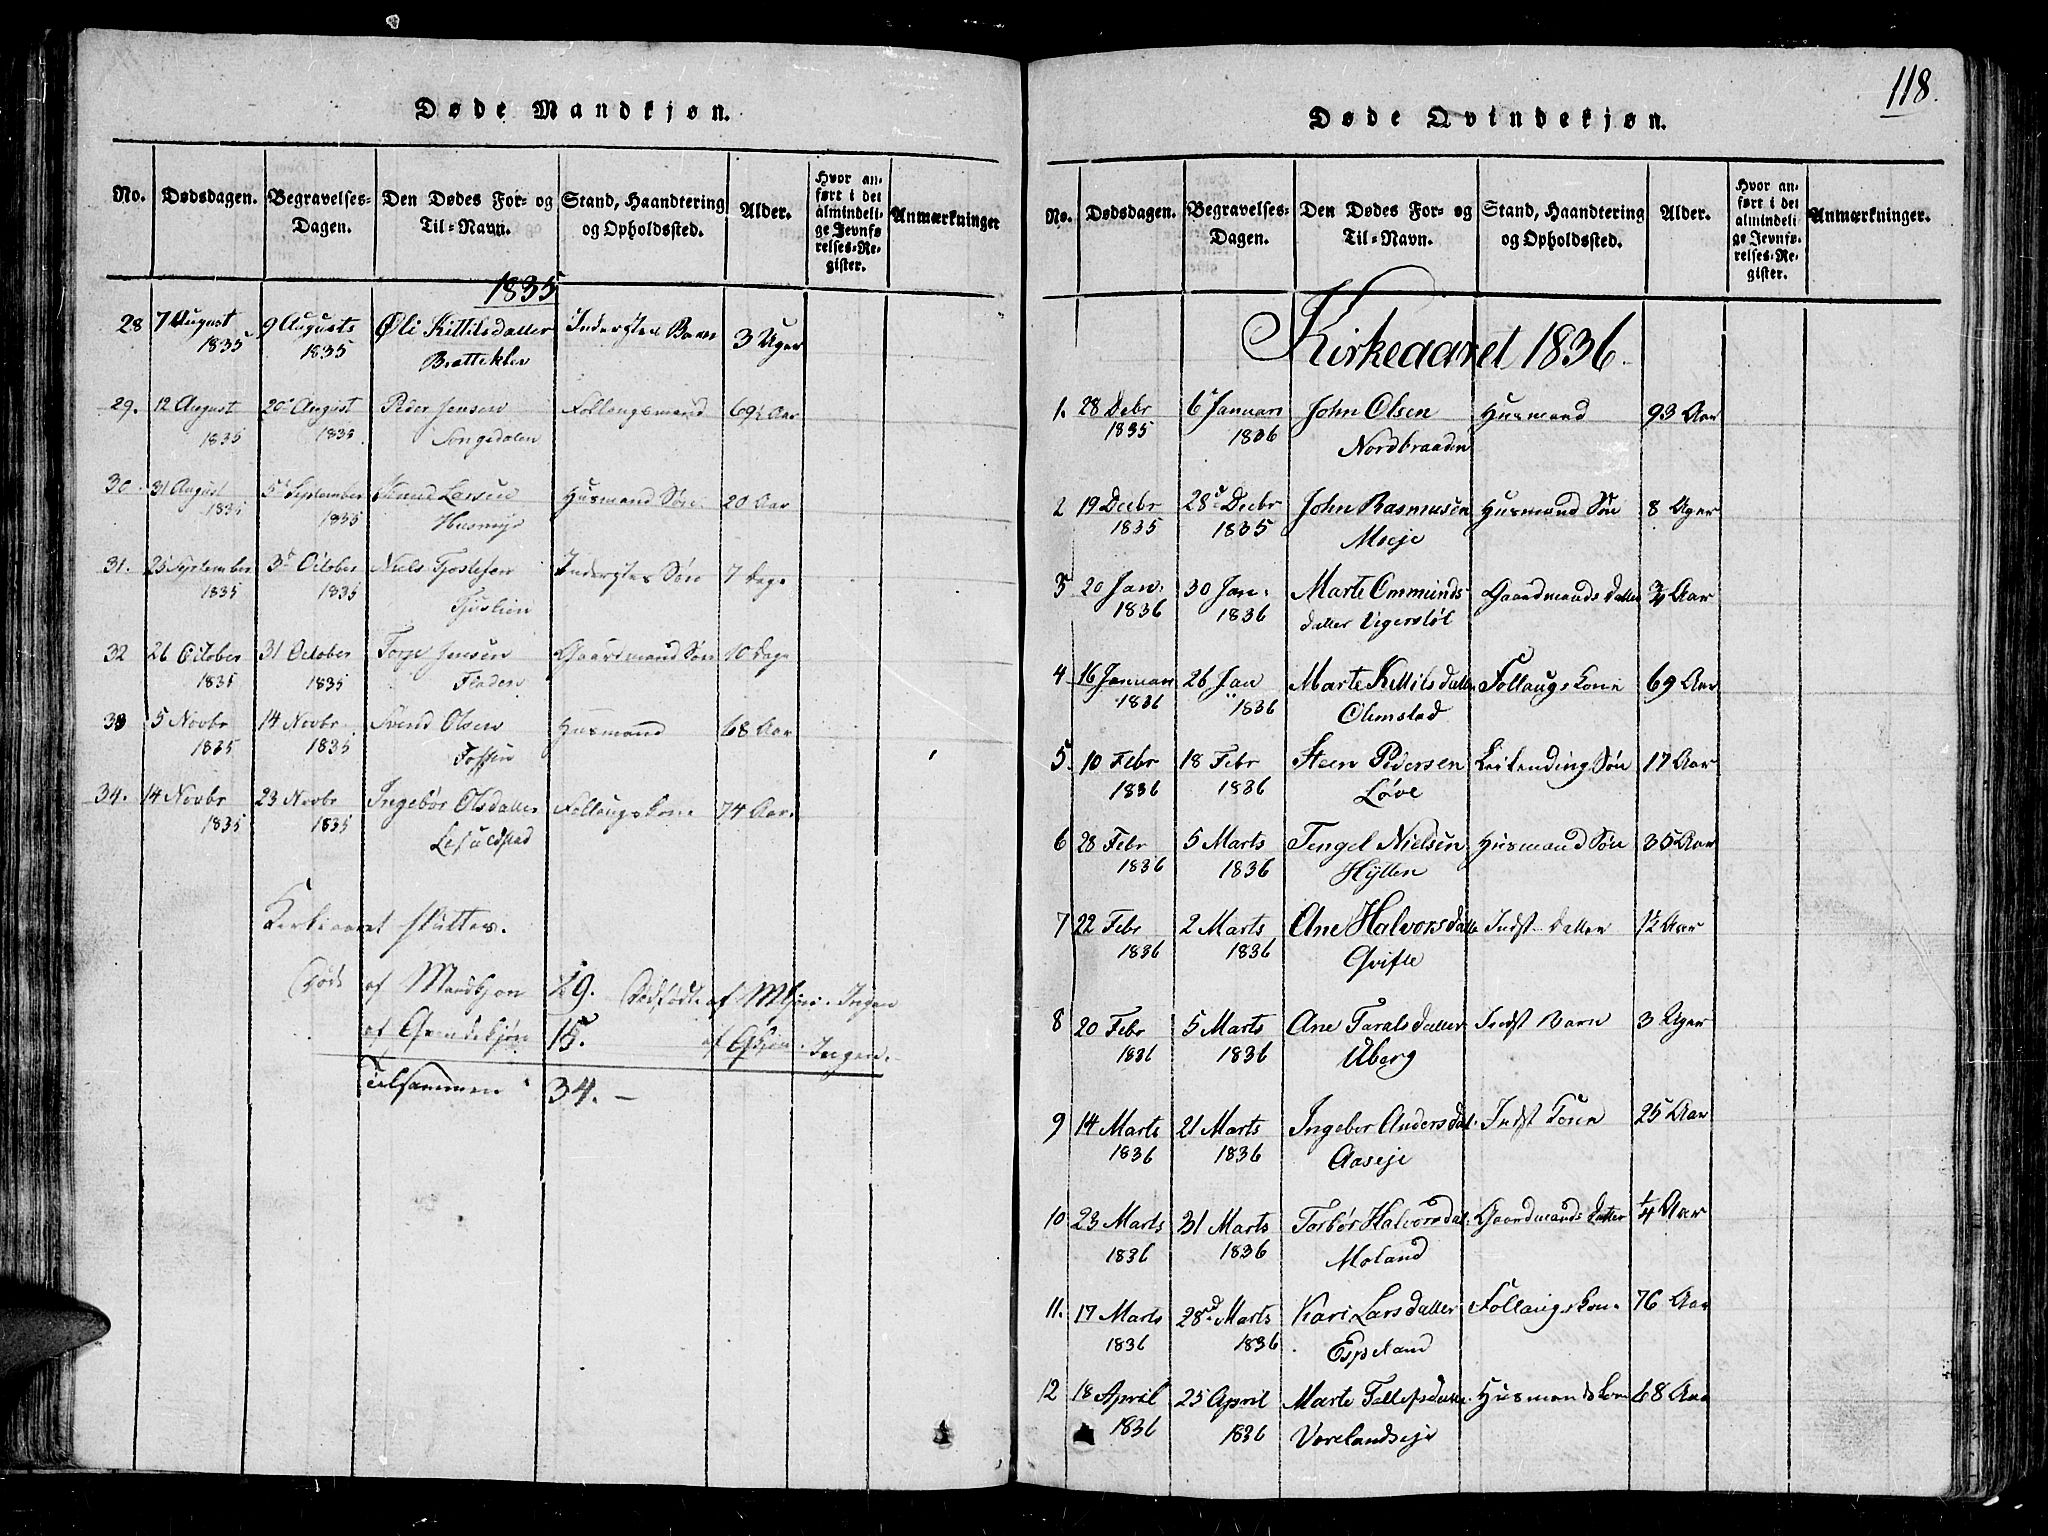 Døde Mandkjøn.
No.
Dødsdagen.
Begravelses-
Dagen.
Den Dødes For- og
Til-Navn.
Stand, Haandtering
og Opholdssted.
Alder.
Hvor an-
ført i det
almindeli-
ge Jevnfø-
relses-Re-
gister.
Anmærkninger
1835
28 7 August 9 Augusts Øli Kittilsdatter Inderstes Barn 3 Uger
1835 1835 Brattekler
29. 12 August 20 August Peder Jensen Follaugsmand 69½ Aar
1835 1835 Songedalen
30 31 August 5 September Knud Larsen Husmand Søn 20 Aar
1835 1835 Husmyr
31. 23 September 3d October Niels 7 Dage
1835 1835
32 26 October 31 October Jensen Gaardmand Søn 10 Dage
1835 1835
33 5 Novbr 14 Novbr Svend Olsen Husmand 68 Aar
1835 1835 Fossen
34. 14 Novbr 23 Novbr Ingebør Olsdatter Follaugskone 74 Aar.
1835 1835
Kirkeaaret slutter.
Døde af Mandkjøn 19. Dødfødte af Mkjøn. Ingen
af Qvindekjøn 15. af Qkjøn. Ingen.
Tilsammen 34. –
118.
Døde Qvindekjøn.
No.
Dødsdagen.
Begravelses-
Dagen.
Den Dødes For- og
Til-Navn.
Stand, Haandtering
og Opholdssted.
Alder.
Hvor an-
ført i det
almindeli-
ge Jevnfø-
relses-Re-
gister.
Anmærkninger.
Kirkeaaret 1836.
1. 28 Debr 6 Januari John Olsen Husmand 93 Aar
1835 1836 Nordbraaden
2 19 Decbr 28 Decbr John Rasmusen Husmand Søn 8 Uger
1835 1835 Moeje
3 20 Jan. 30 Jan. Marte Ommunds Gaardmands Datter ¾ Aar
1836 1836 datter Vigerstøl
4 16 Januari 26 Jan Marte Kittilsdatter Follaugskone 69 Aar
1836 1836 Olimstad
5. 10 Febr 18 Febr Steen Pedersen Søn 17 Aar
1836 1836 Løve
6 28 Febr 5 Marts Tengel Nielsen Husmand Søn 35 Aar
1836 1836 Hÿtten
7 22 Febr 2 Marts Ane Halvorsdatte Indst Datter 1½ Aar
1836 1836
8 20 Febr 5 Marts Ane Taralsdatter Indst Barn 3 Uger
1836 1836 Uberg
9 14 Marts 21 Marts Ingebor Andersdat. Indst 25 Aar
1836 1836 Aaseje
10 23 Marts 31 Marts Torbør Halvorsdat. Gaardmands datter ¼ Aar
1836 1836 Moland
11. 17 Marts 28 Marts Kari Larsdatter Follaugskone 76 Aar
1836 1836 Espeland
12 18 April 25 April Marte Tellefsdatte. Husmandskone 68 Aar
1836 1836 Vorelandseje